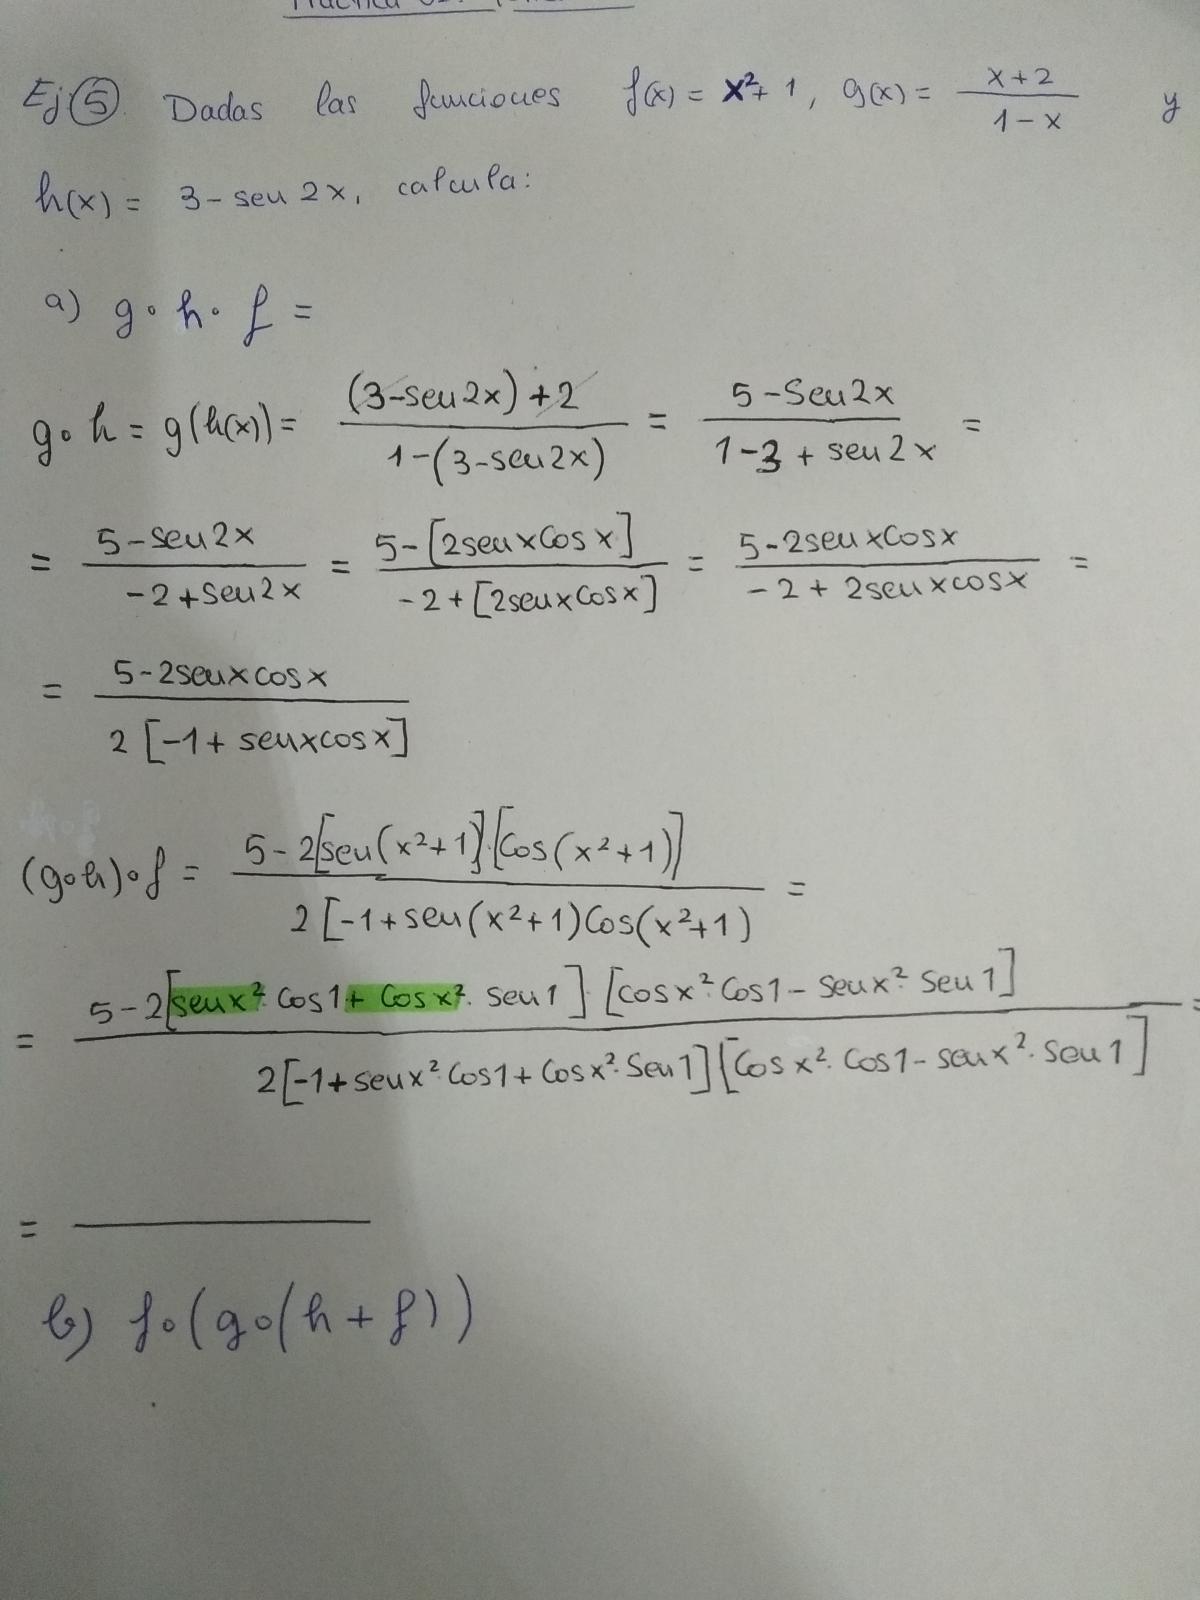 Ej 5. Dadas las funciones f(x) = x²+ 1, g(x) = (x+2)/(1-x) y
h(x) = 3-sen 2x, calcula:
a) g∘h∘f =
g∘h = g(h(x)) = ((3-sen2x)+2)/(1-(3-sen2x)) = (5-Sen2x)/(1-3+sen2x) =
= (5-sen2x)/(-2+sen2x) = (5-[2senxCosx])/(-2+[2senxCosx]) = (5-2senxCosx)/(-2+2senxcosx) =
= (5-2senxcosx)/(2[-1+senxcosx])
(g∘h)∘f = (5-2[sen(x²+1]·[Cos(x²+1)])/(2[-1+sen(x²+1)Cos(x²+1)) =
= (5-2[senx²·Cos1+Cosx²·sen1]·[cosx²·Cos1-senx²·Sen1])/(2[-1+senx²·Cos1+Cosx²·Sen1][Cosx²·Cos1-senx²·Sen1]) =
=
b) f∘(g∘(h+f))